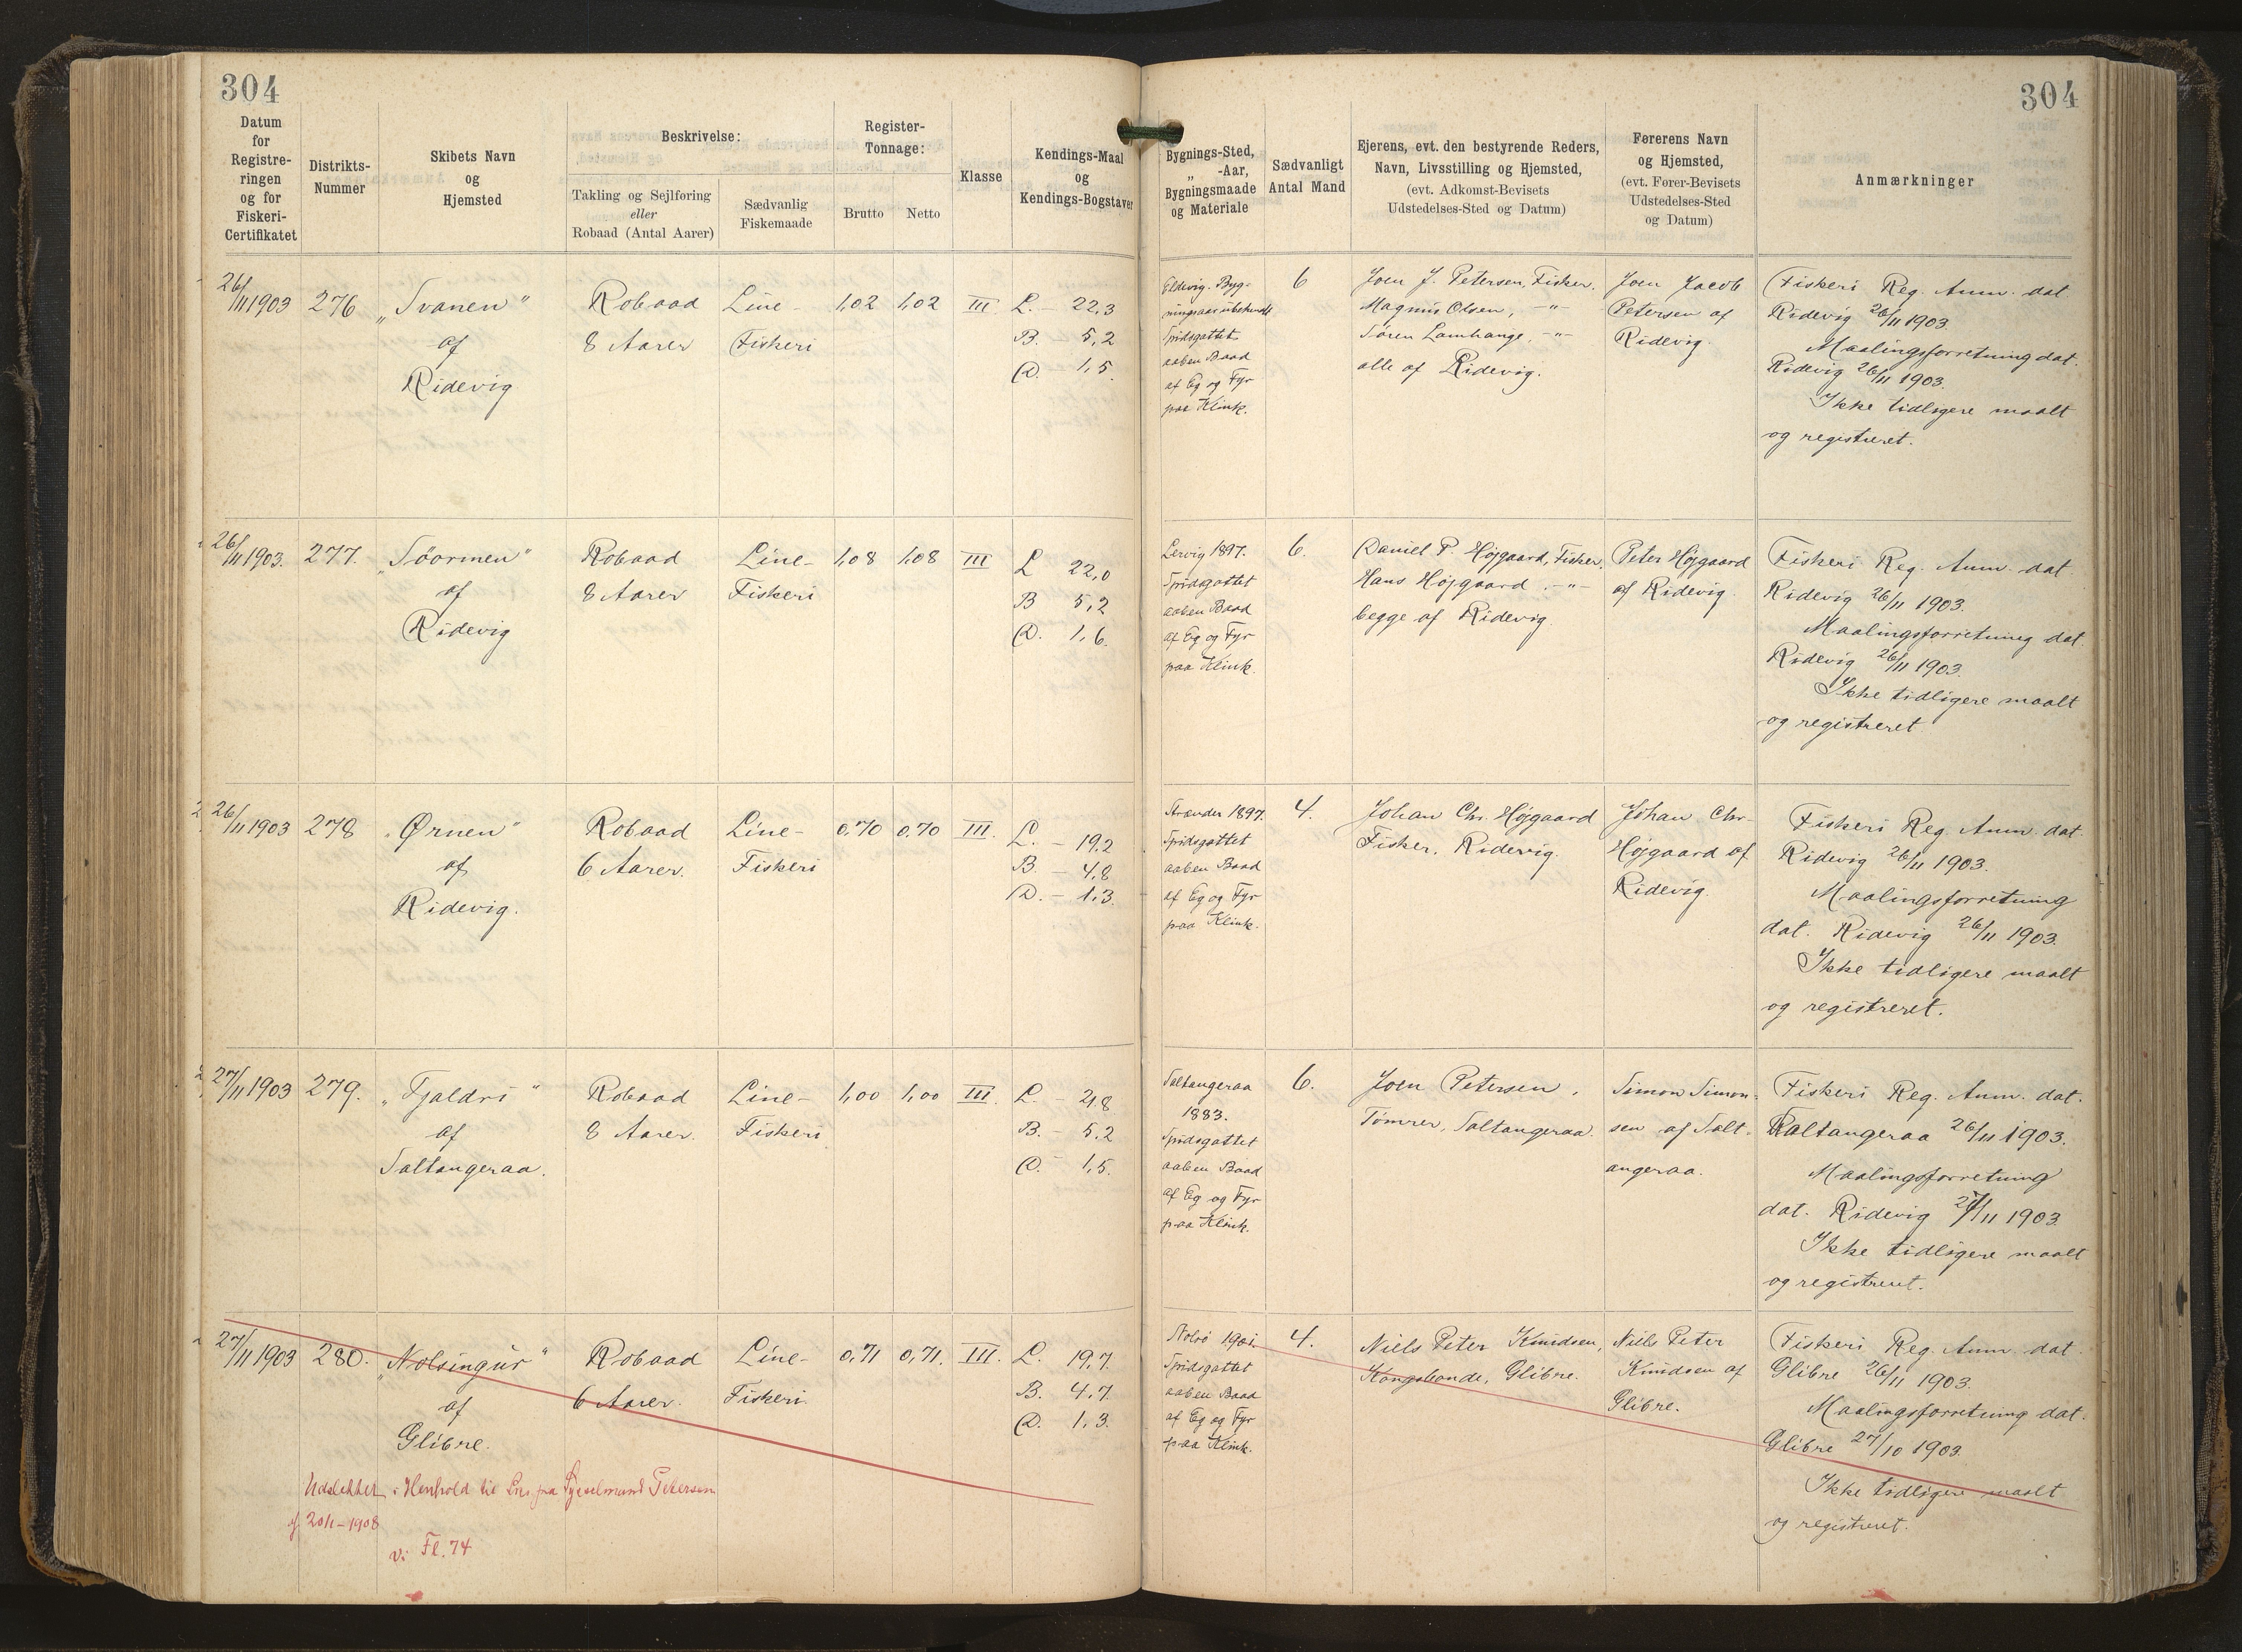 304
304
Datum
for
Registre-
ringen
og for
Fiskeri-
Certifikatet
Distrikts-
Nummer
Skibets Navn
og
Hjemsted
Beskrivelse:
Takling og Sejlføring
eller
Robaad (Antal Aarer)
Sædvanlig
Fiskemaade
Register-
Tonnage:
Brutto
Netto
Klasse
Kendings-Maal
og
Kendings-Bogstaver
Bygnings-Sted,
„ -Aar,
Bygningsmaade
og Materiale
Sædvanligt
Antal Mand
Ejerens, evt. den bestyrende Reders,
Navn, Livsstilling og Hjemsted,
(evt. Adkomst-Bevisets
Udstedelses-Sted og Datum)
Førerens Navn
og Hjemsted,
(evt. Fører-Bevisets
Udstedelses-Sted
og Datum)
Anmærkninger
26/11 1903
276
„Svanen"
af
Ridevig
Robaad
8 Aarer
Line -
Fiskeri
1,02
1,02
III
L. - 22,3
B. - 5,2
D. - 1,5.
Eldevig. Byg-
ningsaar ubekendt
Spidsgattet
aaben Baad
af Eg og Fyr
paa Klink.
6
Joen J. Petersen, Fisker.
Magnus Olsen, -"-
Søren Lamhauge, -"-
alle af Ridevig.
Joen Jacob
Petersen af
Ridevig.
Fiskeri Reg. Anm. dat.
Ridevig 26/11 1903.
Maalingsforretning dat.
Ridevig 26/11 1903.
Ikke tidligere maalt
og registreret.
26/11 1903.
277.
„Söormen"
af
Ridevig
Robaad
8 Aarer
Line-
Fiskeri
1,08
1,08
III
L 22,0
B 5,2
D. 1,6.
Lervig 1897.
Spidsgattet
aaben Baad
af Eg og Fyr
paa Klink.
6.
Daniel P. Højgaard, Fisker.
Hans Højgaard . -"-
begge af Ridevig.
Peter Højgaard
af Ridevig.
Fiskeri Reg. Anm. dat.
Ridevig 26/11 1903.
Maalingsforretning dat.
Ridevig 26/11 1903.
Ikke tidligere maalt
og registreret
26/11 1903
278
„Ørnen"
af
Ridevig.
Robaad
6 Aarer.
Line-
Fiskeri
0,70
0,70
III.
L. - 19,2
B. - 4,8
D. - 1,3.
Strænder 1897.
Spidsgattet
aaben Baad
af Eg og Fyr
paa Klink.
4.
Johan Chr. Højgaard
Fisker. Ridevig.
Johan Chr-
Højgaard af
Ridevig.
Fiskeri Reg. Anm. dat.
Ridevig 26/11 1903.
Maalingsforretning
dat. Ridevig 26/11 1903.
Ikke tidligere maalt
og registreret.
27/11 1903
279.
„Tjaldri"
af
Saltangeraa.
Robaad
8 Aarer.
Line-
Fiskeri
1,00
1,00
III.
L. - 21,8
B. - 5,2
D. - 1,5.
Saltangeraa
1883.
Spidsgattet
aaben Baad
af Eg og Fyr
paa Klink.
6.
Joen Petersen,
Tømrer, Saltangeraa.
Simon Simon-
sen af Salt-
angeraa.
Fiskeri Reg. Anm. dat.
Saltangeraa 26/11 1903.
Maalingsforretning
dat. Ridevig 27/11 1903.
Ikke tidligere maalt
og registreret.
27/11 1903
280.
„Nolsingur"
af
Glibre.
Robaad
6 Aarer.
Line-
Fiskeri.
0,71
0,71.
III.
L. 19,7.
B. 4,7.
D. 1,3.
Nolsö 1901.
Spidsgattet
aaben Baad
af Eg og Fyr
paa Klink.
4.
Niels Peter Knudsen,
Kongsbonde, Glibre.
Niels Peter
Knudsen af
Glibre.
Fiskeri Reg. Anm. dat.
Glibre 26/11 1903.
Maalingsforretning dat.
Glibre 27/10 1903.
Ikke tidligere maalt
og registreret.
Udslettet i Henhold til fra Sysselmand Petersen
af 20/1-1908
Fl. 74